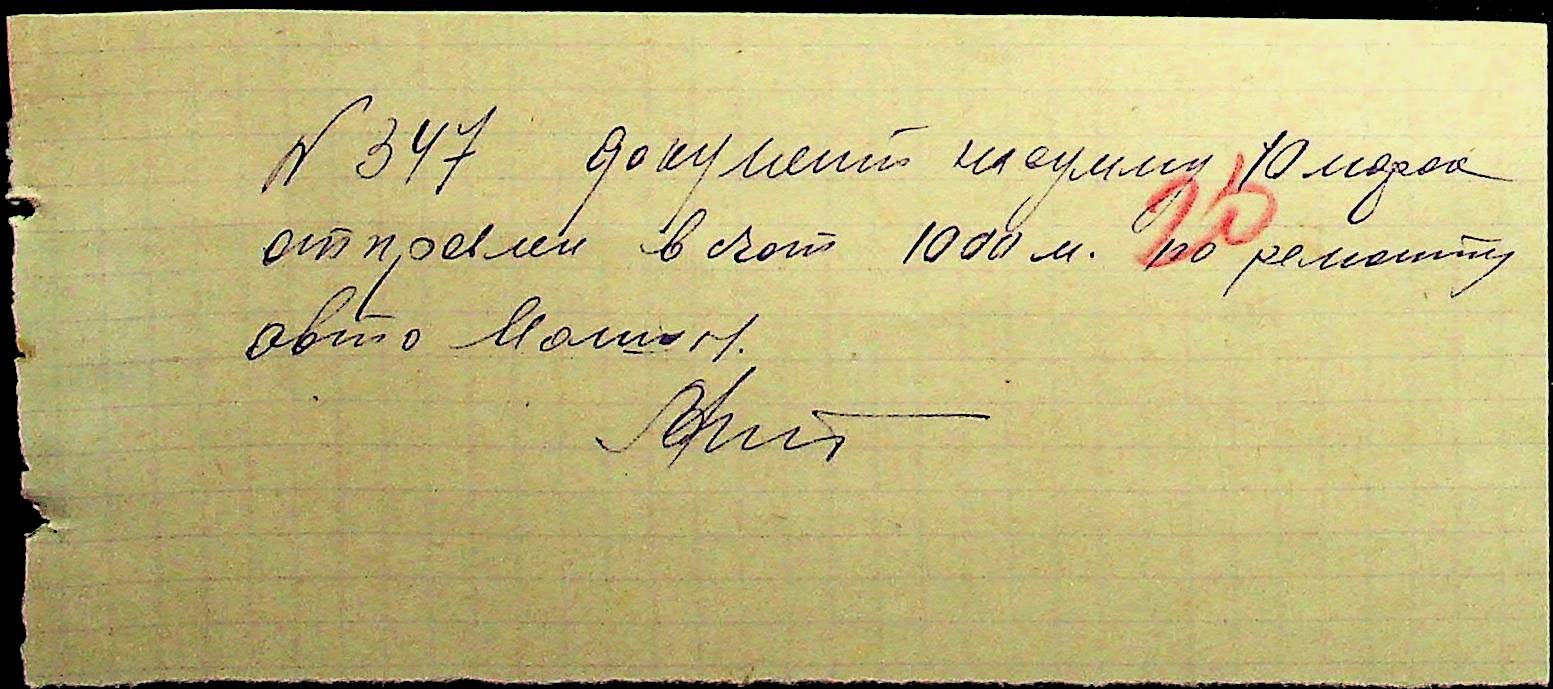 N 347 документ на сумму 10 марок
25
отправлен в счот 1000 м. по ремонту
авто Машин.